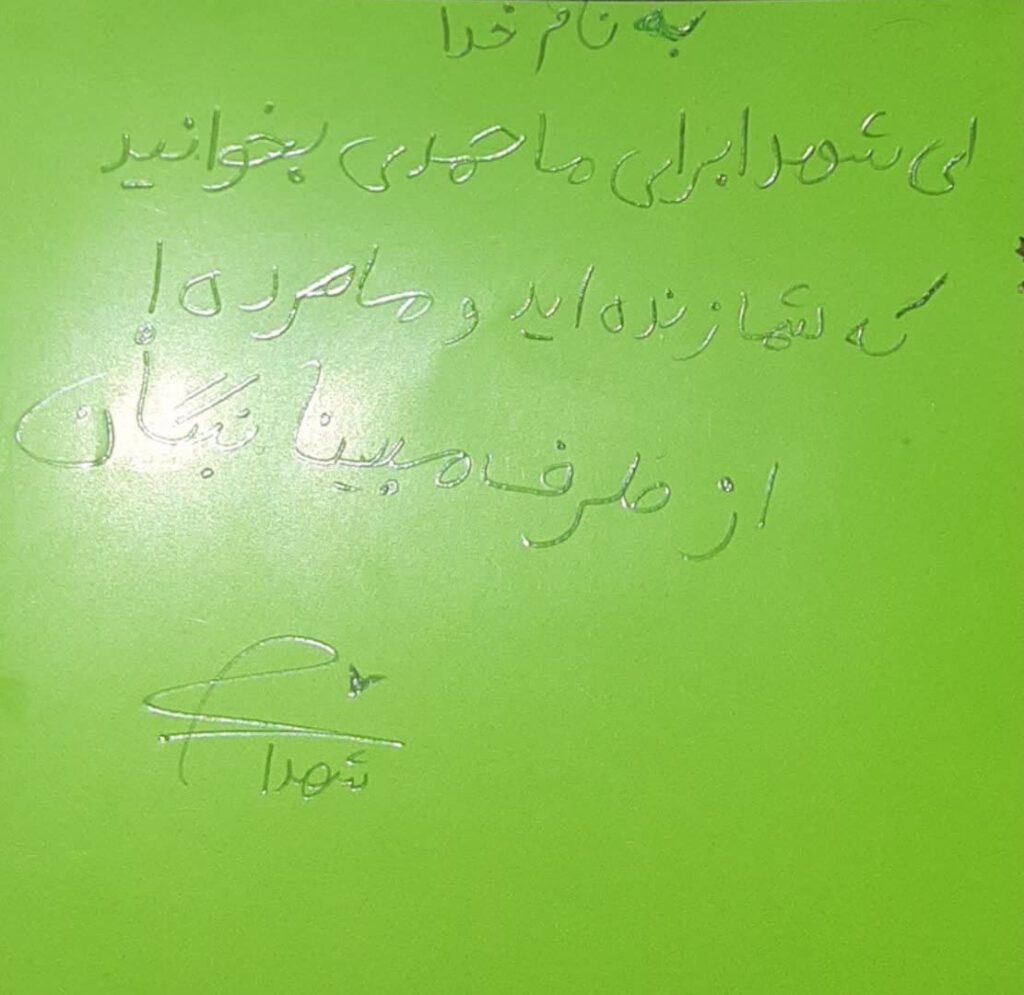 به نام خدا
ای شهدا برای ما حمدی بخوانید
که شما زنده اید و ما مرده !
از طرف مبینا
شهدا